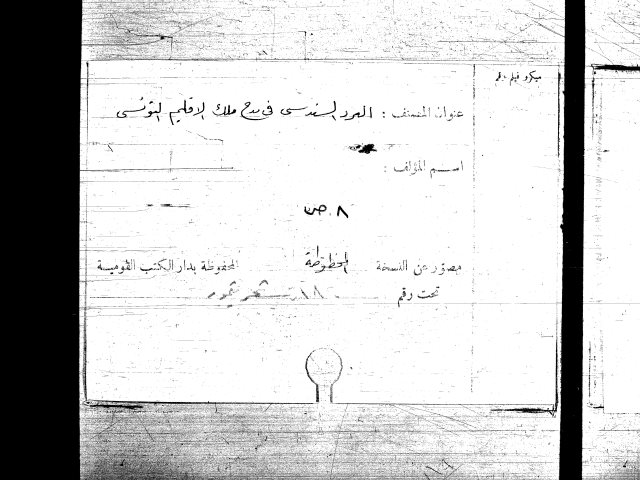 ميكروفيلم رقم
عنوان المصنف : البرد السندسى فى مدح ملك الاقليم التونسى
اسم المؤلف :
٨ ص
مصور عن النسخة المخطوطة المحفوظة بدار الكتب القومية
تحت رقم شعر تيمور